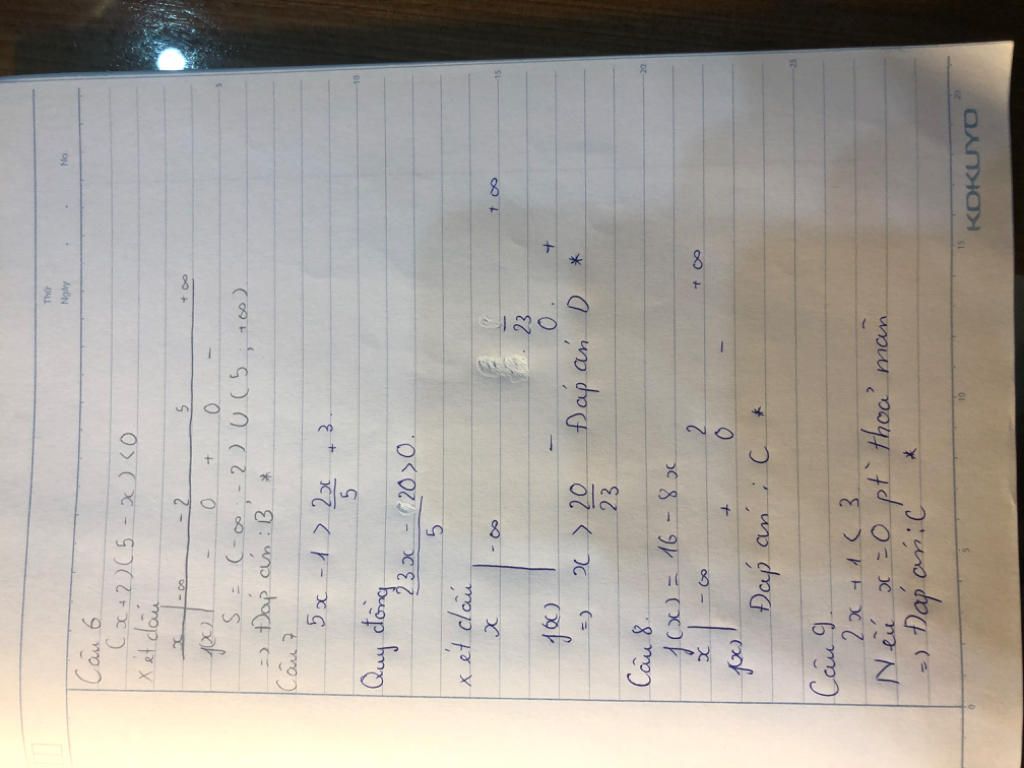 Thứ
Ngày . . No.
Câu 6
(x+2)(5-x)<0
xét dấu
x -∞ -2 5 +∞
f(x) - 0 + 0 -
S = (-∞; -2) ∪ (5; +∞)
=> Đáp án: B *
Câu 7
5x - 1 > 2x/5 + 3.
Quy đồng
23x - 20/5 > 0.
xét dấu
x -∞ /23 +∞
f(x) - 0. +
=> x > 20/23 Đáp án D *
Câu 8.
f(x) = 16 - 8x
x -∞ 2 +∞
f(x) + 0 -
Đáp án: C *
Câu 9.
2x + 1 < 3
Nếu x = 0 pt thoả mãn
=> Đáp án: C *
0 5 10 15 20
5 10 15 20 25
KOKUYO